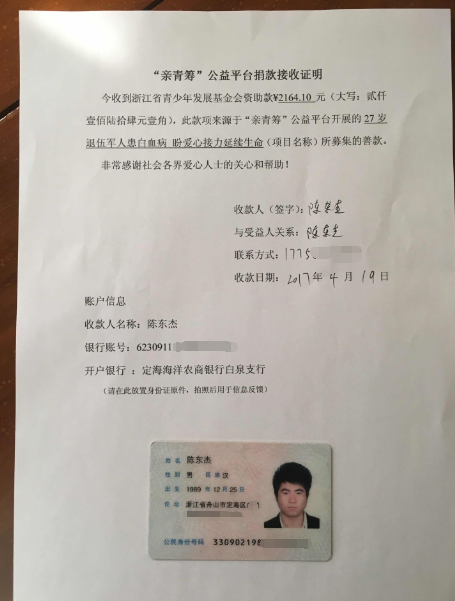 “亲青筹”公益平台捐款接收证明
今收到浙江省青少年发展基金会资助款¥2164.10 元（大写：贰仟
壹佰陆拾肆元壹角），此款项来源于“亲青筹”公益平台开展的 27 岁
退伍军人患白血病 盼爱心接力延续生命（项目名称）所募集的善款。
非常感谢社会各界爱心人士的关心和帮助！
收款人（签字）：陈东杰
与受益人关系：陈东杰
联系方式：1775
收款日期：2017年 4 月 19日
账户信息
收款人名称：陈东杰
银行账号：6230911
开户银行 ：定海海洋农商银行白泉支行
（请在此放置身份证原件，拍照后用于信息反馈）
姓名 陈东杰
性别 男 民族 汉
出生 1989 年 12 月 25 日
住址 浙江省舟山市定海区
公民身份号码 330902198